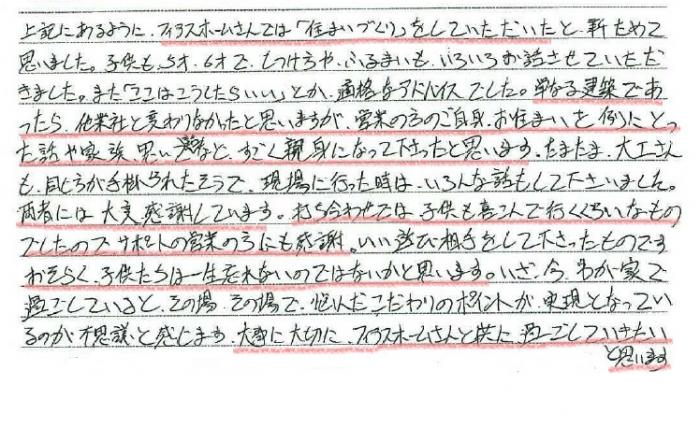 上記にあるように、フィックスホームさんでは「住まいづくり」をしていただいたと、新ためて
思いました。子供も、5才、6才で、しつけ方や、ふるまいも、いろいろお話させていただ
きました。また「ここはこうしたらいい」とか、適格なアドバイスでした。単なる建築であ
ったら、他業社と変わりなかったと思いますが、営業の方のご自身、お住まいを例にとっ
た話や家族、思いなど、すごく親身になって下さったと思います。たまたま、大工さん
も、同じ方が手掛けられたそうで、現場に行った時は、いろんな話もして下さいました。
両者には大変感謝しています。打ち合わせでは子供も喜こんで行くくらいなもの
でしたので サポートの営業の方にも感謝。いい遊び相手をして下さったものです
おそらく、子供たちは一生忘れないのではないかと思います。いざ、今、わが家で
過ごしていると、その場、その場で、悩んだこだわりのポイントが、実現となってい
るのが不思議と感じます。大事に大切に、フィックスホームさんと共に、過ごしていきたい
と思います